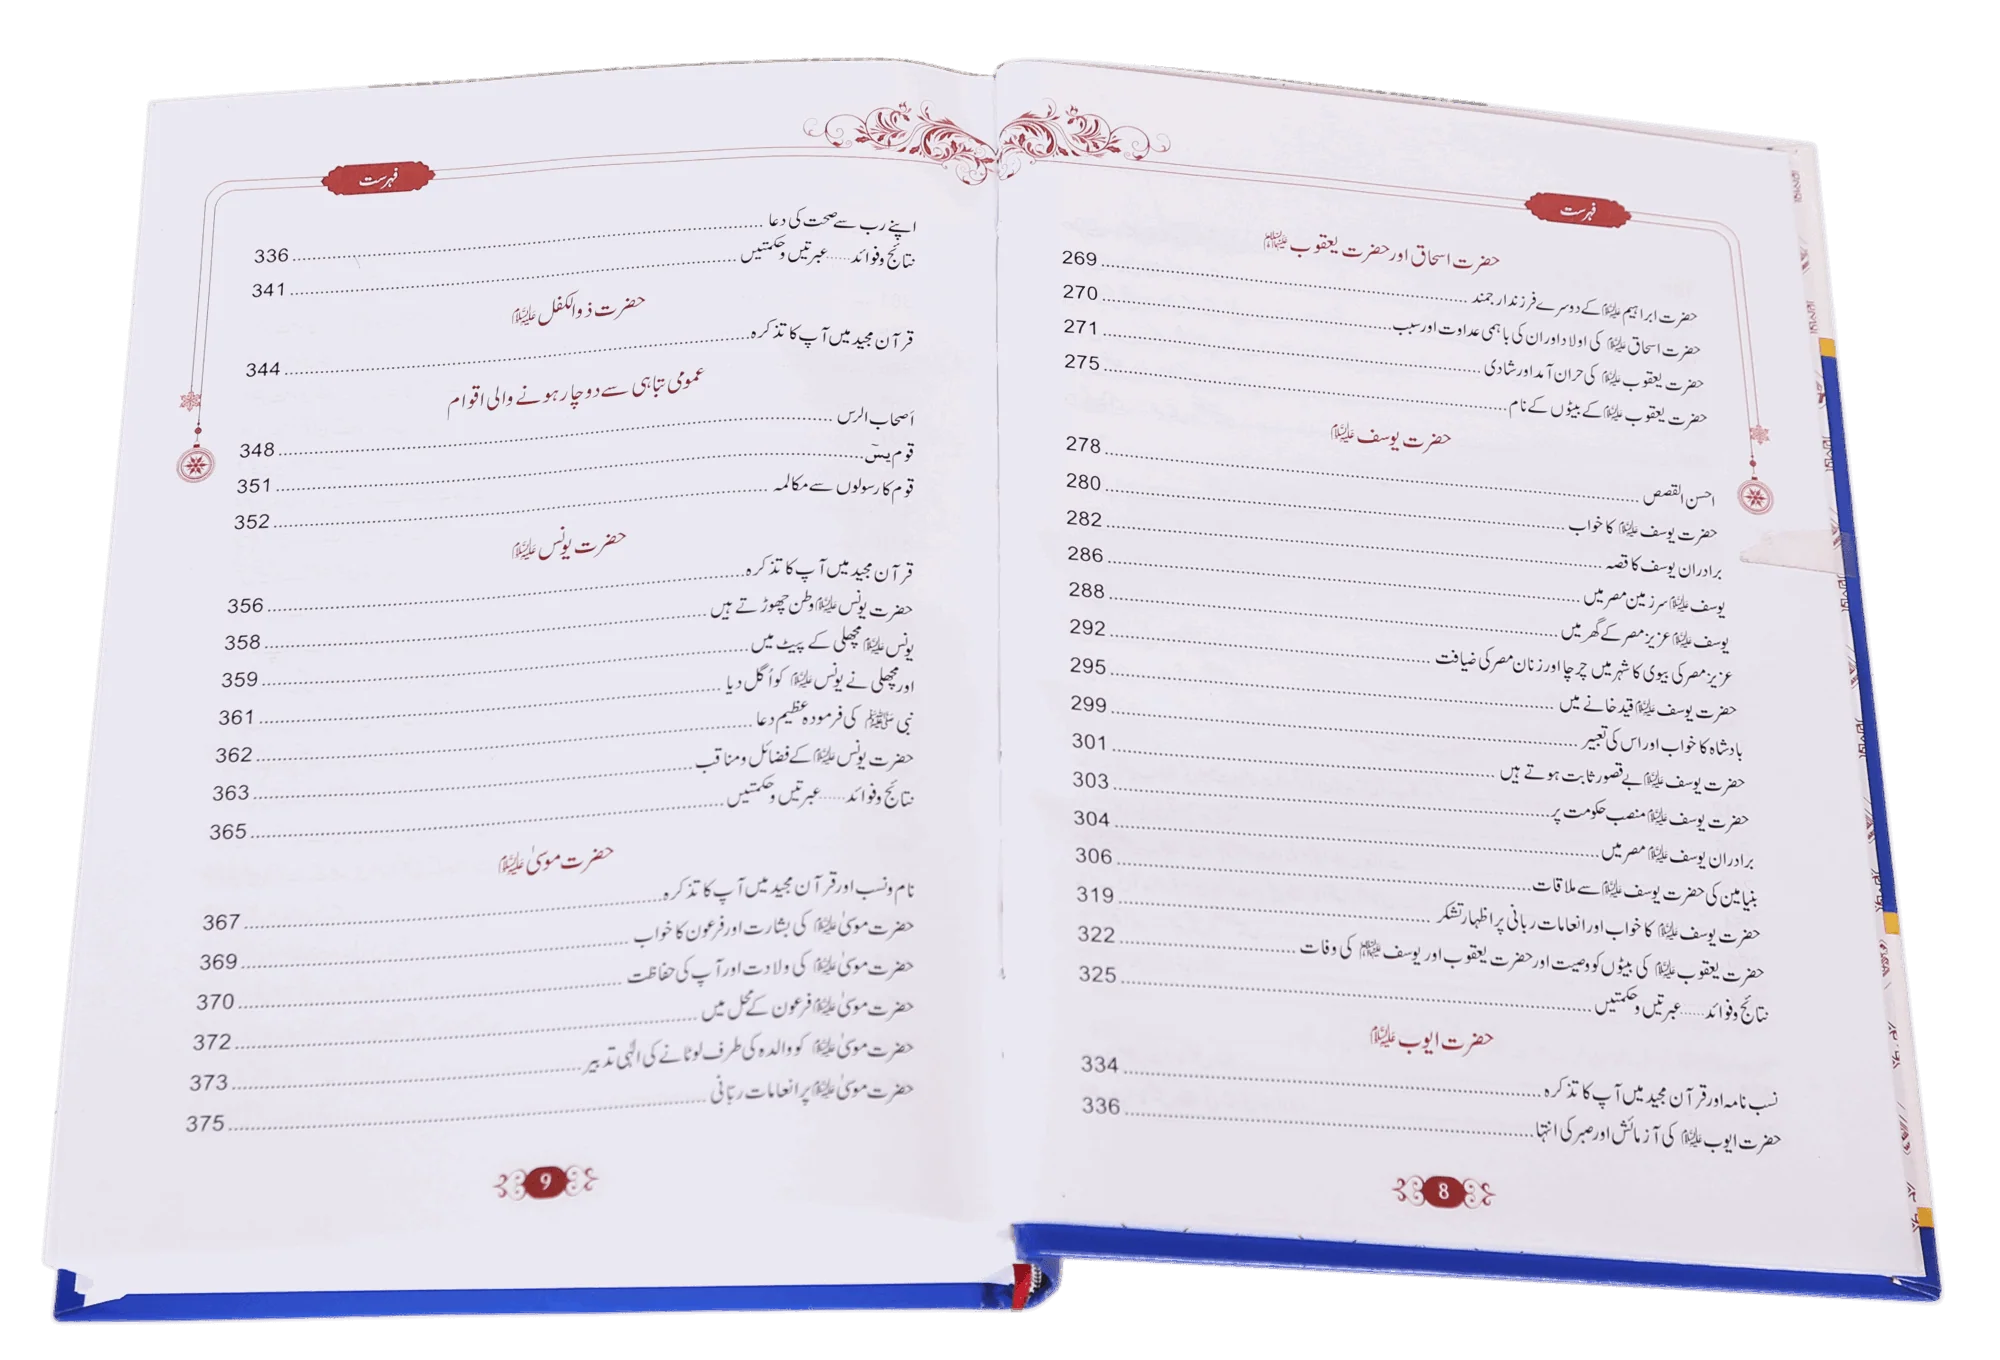 فہرست
حضرت اسحاق اور حضرت یعقوب علیہما السلام
حضرت ابراہیم علیہ السلام کے دوسرے فرزند ارجمند 269
حضرت اسحاق علیہ السلام کی اولاد اور ان کی باہمی عداوت اور سبب 270
حضرت یعقوب علیہ السلام کی حران آمد اور شادی 271
حضرت یعقوب علیہ السلام کے بیٹوں کے نام 275
حضرت یوسف علیہ السلام
احسن القصص 278
حضرت یوسف علیہ السلام کا خواب 280
برادران یوسف کا قصہ 282
یوسف علیہ السلام سرزمین مصر میں 286
یوسف علیہ السلام عزیز مصر کے گھر میں 288
عزیز مصر کی بیوی کا شہر میں چرچا اور زنان مصر کی ضیافت 292
حضرت یوسف علیہ السلام قید خانے میں 295
بادشاہ کا خواب اور اس کی تعبیر 299
حضرت یوسف علیہ السلام بے قصور ثابت ہوتے ہیں 301
حضرت یوسف علیہ السلام منصب حکومت پر 303
برادران یوسف علیہ السلام مصر میں 304
بنیامین کی حضرت یوسف علیہ السلام سے ملاقات 306
حضرت یوسف علیہ السلام کا خواب اور انعامات ربانی پر اظہار تشکر 319
حضرت یعقوب علیہ السلام کی بیٹوں کو وصیت اور حضرت یعقوب اور یوسف علیہما السلام کی وفات 322
نتائج و فوائد...... عبرتیں و حکمتیں 325
حضرت ایوب علیہ السلام
نسب نامہ اور قرآن مجید میں آپ کا تذکرہ 334
حضرت ایوب علیہ السلام کی آزمائش اور صبر کی انتہا 336
8
فہرست
اپنے رب سے صحت کی دعا 336
نتائج و فوائد...... عبرتیں و حکمتیں 341
حضرت ذوالکفل علیہ السلام
قرآن مجید میں آپ کا تذکرہ 344
عمومی تباہی سے دوچار ہونے والی اقوام
اَصحاب الرس 348
قوم یٰسٓ 351
قوم کا رسولوں سے مکالمہ 352
حضرت یونس علیہ السلام
قرآن مجید میں آپ کا تذکرہ 356
حضرت یونس علیہ السلام وطن چھوڑتے ہیں 358
یونس علیہ السلام مچھلی کے پیٹ میں 359
اور مچھلی نے یونس علیہ السلام کو اُگل دیا 361
نبی صلی اللہ علیہ وسلم کی فرمودہ عظیم دعا 362
حضرت یونس علیہ السلام کے فضائل و مناقب 363
نتائج و فوائد...... عبرتیں و حکمتیں 365
حضرت موسیٰ علیہ السلام
نام و نسب اور قرآن مجید میں آپ کا تذکرہ 367
حضرت موسیٰ علیہ السلام کی بشارت اور فرعون کا خواب 369
حضرت موسیٰ علیہ السلام کی ولادت اور آپ کی حفاظت 370
حضرت موسیٰ علیہ السلام فرعون کے محل میں 372
حضرت موسیٰ علیہ السلام کو والدہ کی طرف لوٹانے کی الٰہی تدبیر 373
حضرت موسیٰ علیہ السلام پر انعامات ربّانی 375
9